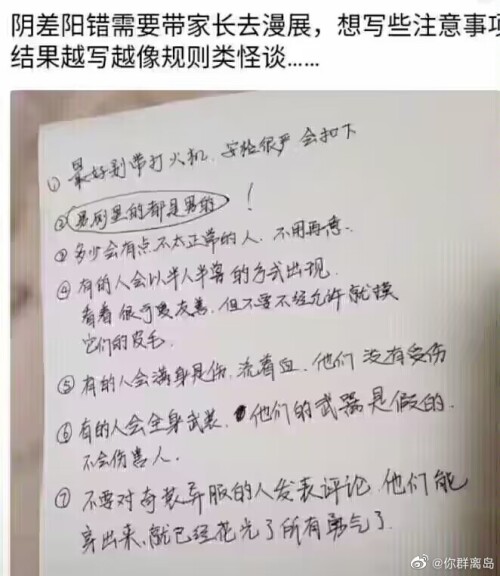 阴差阳错需要带家长去漫展，想写些注意事项
结果越写越像规则类怪谈……
① 最好别带打火机，安检很严 会扣下
② 男厕里的都是男的 ！
③ 多少会有点不太正常的人，不用再意.
④ 有的人会以半人半兽的方式出现.
看着很可爱友善，但不要不经允许就摸
它们的皮毛
⑤ 有的人会满身是伤，流着血，他们 没有受伤
⑥ 有的人会全身武装，他们的武器是假的.
不会伤害人.
⑦ 不要对奇装异服的人发表评论，他们能
弃出来，就已经花光了所有勇气了.
@你群离岛